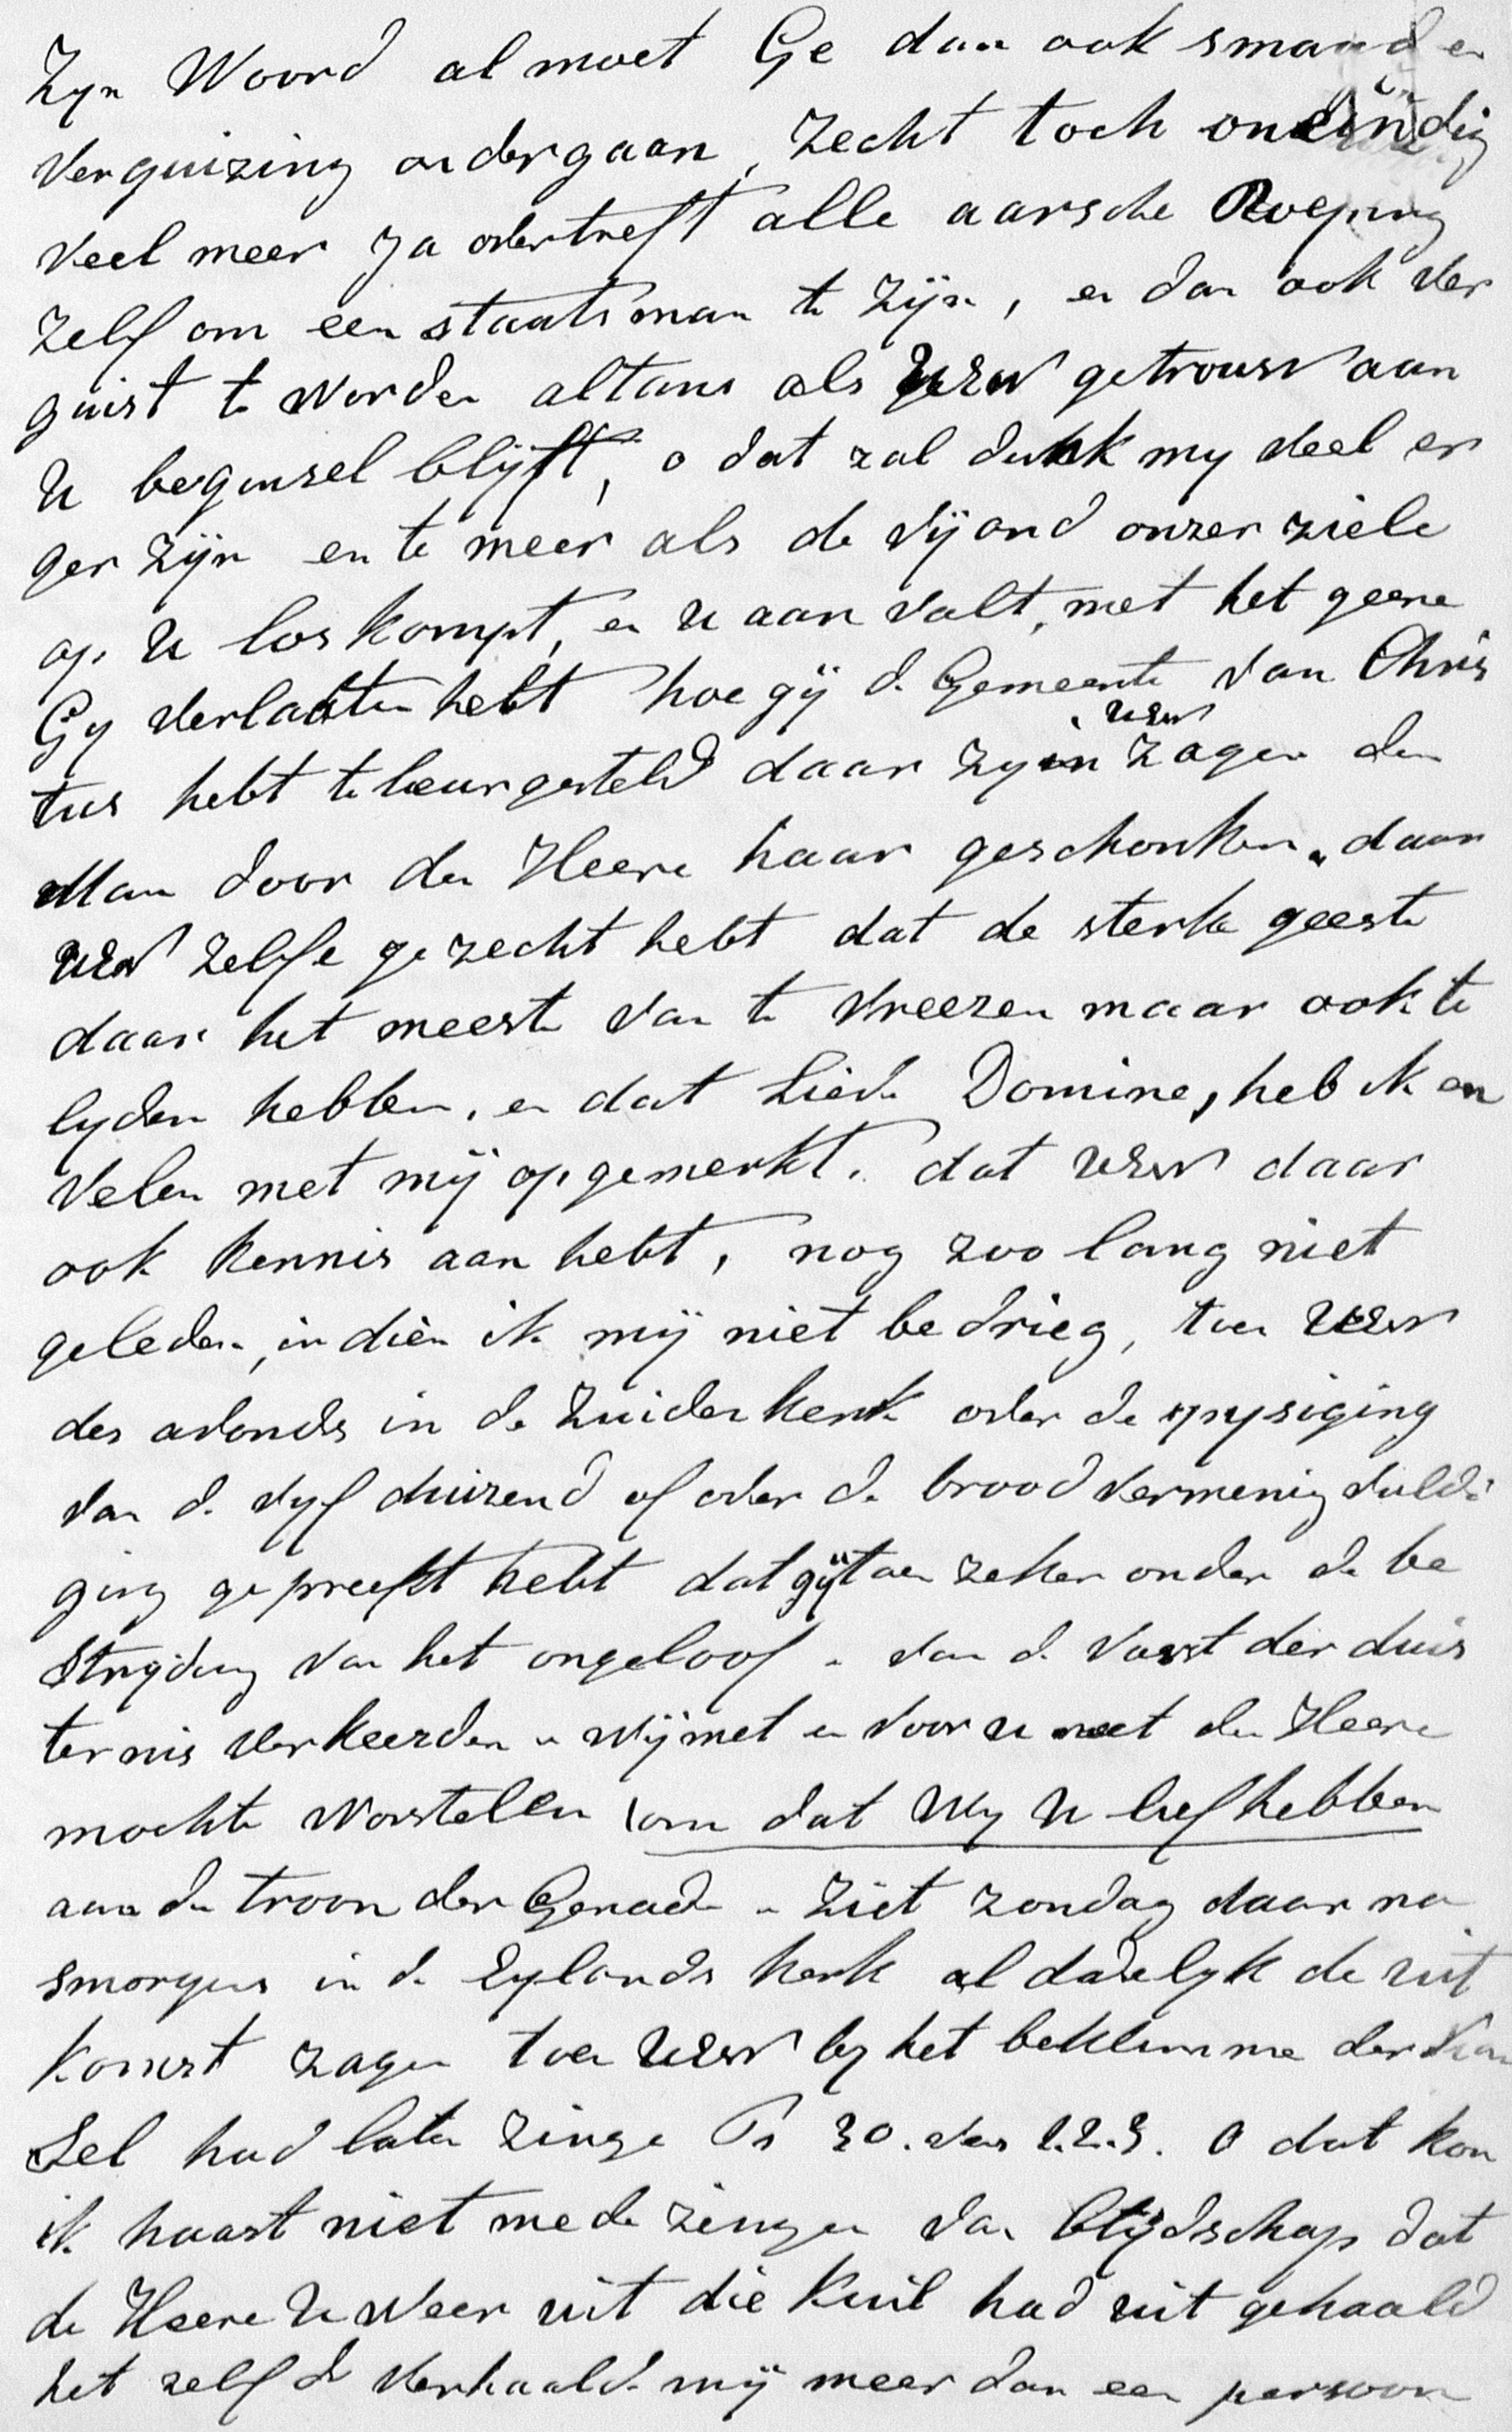 Zyn Woord al moet Ge dan ook smaad en
verguizing ondergaan, zecht toch oneindig
veel meer ja overtreft alle aarsche Roeping
zelf om een staatsman te zijn, en dan ook ver
guist te worden altans als UEW getrouw aan
U beginsel blijft, o dat zal dunk my veel er
ger zijn en te meer als de vijand onzer ziele
op U los kompt, en U aan valt, met het geene
Gy verlaaten hebt hoe gij de Gemeente van Chris
tus hebt te leurgesteld daar zy in UEW zagen den
Man door den Heere haar geschonken, daar
UEW zelfe gezecht hebt dat de sterke geeste
daar het meeste van te vreezen maar ook te
lyden hebben, en dat Liede Domine, heb ik en
velen met mij opgemerkt, dat UEW daar
ook kennis aan hebt, nog zoo lang niet
geleden, indien ik mij niet bedrieg, toen UEW
des avonds in de Zuiderkerk over de spysiging
van de vyf duizend of over de broodvermenigvuldi
ging gepreekt hebt dat gij toen zeker onder de be
stryding van het ongeloof en van de vorst der duis
ternis verkeerden en wij met en voor u met den Heere
mochte worstelen (om dat wy U lief hebben
aan den troon der Genade en ziet zondag daar na
smorgens in de Eylands kerk al dadelyk de uit
komst zagen toen UEW by het beklimme der Kan
sel had laten zinge Ps 30. vers 1.2.3. O dat kon
ik haast niet mede zingen van blijdschap dat
de Heere U weer uit die kuil had uit gehaald
het zelfde verhaalde mij meer dan een persoon